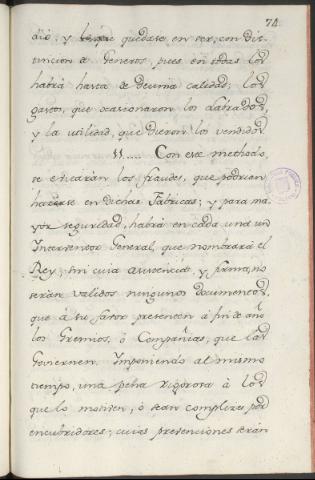 74
dió, y lo que quedase en ser, con dis-
tincion de Generos, pues en todos los
habrá hasta de decima calidad; los
gastos, que ocasionaron los labrados,
y la utilidad, que dieron los vendidos.
11..... Con este methodo,
se evitarán los fraudes, que podrien
hacerse en dichas Fabricas; y para ma-
yor seguridad, habrá en cada una un
Interventor General, que nombrará el
Rey; sin cuia asistencia, y firma, no
serán validos ningunos documentos,
que á su favor presenten á fin de año
los Gremios, ó Compañias, que las
Goviernen. Imponiendo al mismo
tiempo, una pena rigorosa á los
que lo motiven, ó sean complizes por
encubridores; cuias pretenciones serán